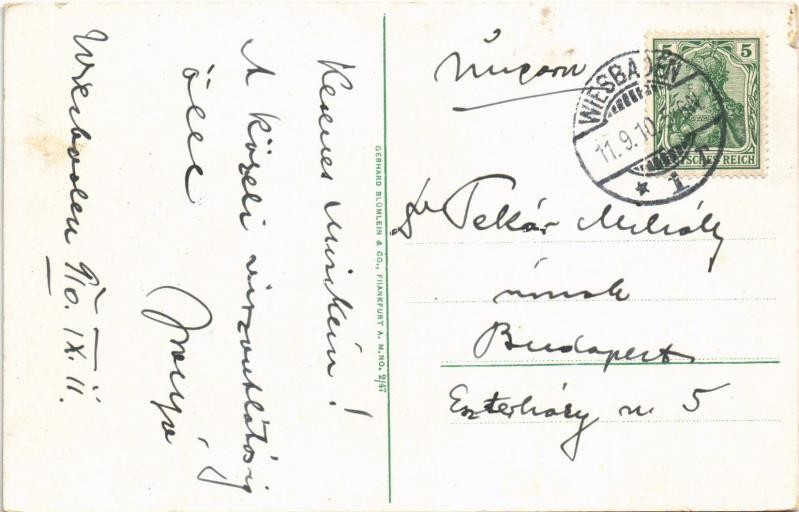 Wiesbaden 910. IX. 11.
Kedves Miskám!
A közeli viszontlátásig
ölel
GERHARD BLÜMLEIN & CO., FRANKFURT A. M. NO. 2/47
Ungarn
WIESBADEN
11.9.10
* 1 r
5 5
DEUTSCHES REICH
Tekár Mihály
úrnak
Budapest
Eszterházy u. 5